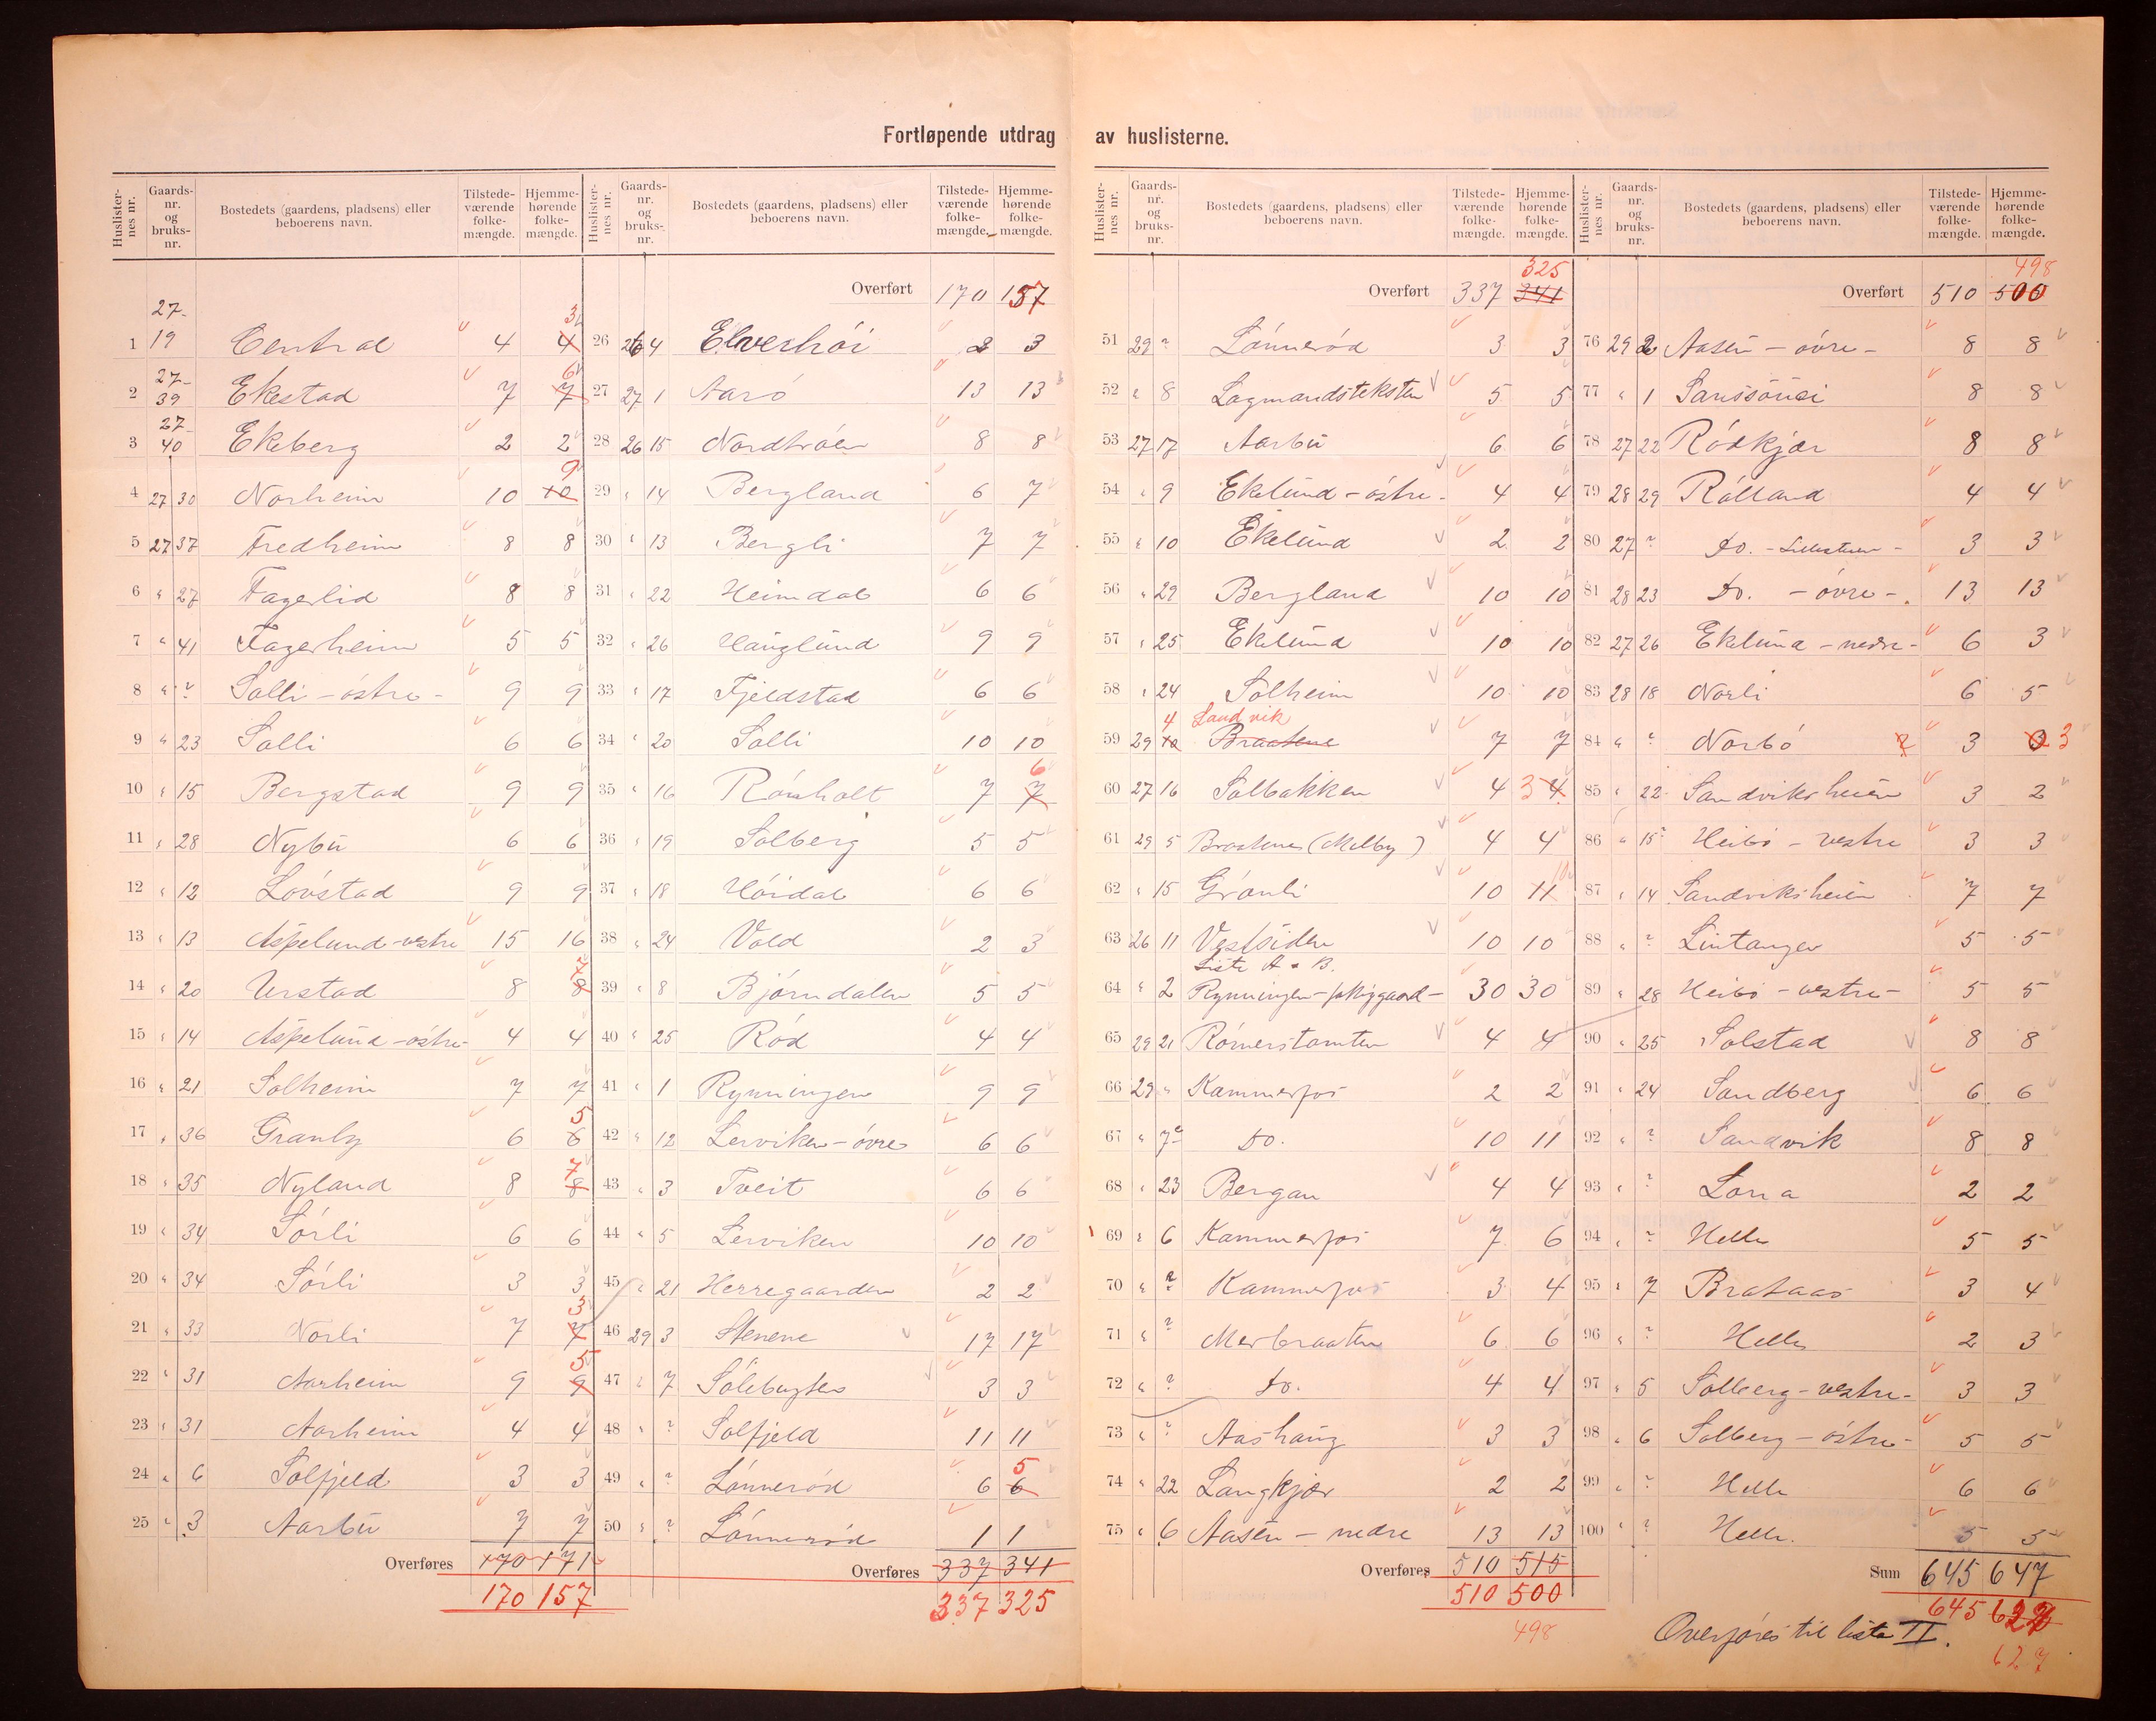 Fortløpende utdrag av huslisterne.
Huslister-nes nr. Gaards-nr. og bruks-nr. Bostedets (gaardens, pladsens) eller beboerens navn. Tilstede-værende folke-mængde. Hjemme-hørende folke-mængde.
27-
1 19 Central 4 4 3
2 27-39 Ekestad 7 7 6
3 27-40 Ekeberg 2 2
4 27 30 Norheim 10 10 9
5 27 37 Fredheim 8 8
6 " 27 Fagerlid 8 8
7 " 41 Fagerheim 5 5
8 " ? Solli - östre - 9 9
9 " 23 Solli 6 6
10 " 15 Bergstad 9 9
11 " 28 Nybu 6 6
12 " 12 Lövstad 9 9
13 " 13 Aspelund-vestre 15 16
14 " 20 Verstad 8 8 7
15 " 14 Aspelund-östre- 4 4
16 " 21 Solheim 7 7
17 " 36 Granly 6 6 5
18 " 35 Nyland 8 8 7
19 " 34 Sörli 6 6
20 " 34 Sörli 3 3
21 " 33 Norli 7 7 3
22 " 31 Aarheim 9 9 5
23 " 31 Aarheim 4 4
24 " 6 Solfjeld 3 3
25 " 3 Aarbu 7 7
Overføres 170 171
170 157
Huslister-nes nr. Gaards-nr. og bruks-nr. Bostedets (gaardens, pladsens) eller beboerens navn. Tilstede-værende folke-mængde. Hjemme-hørende folke-mængde.
Overført 170 157
26 26 4 Elverhöi 2 3
27 27 1 Aarö 13 13
28 26 15 Nordtröen 8 8
29 " 14 Bergland 6 7
30 " 13 Bergli 7 7
31 " 22 Heimdal 6 6
32 " 26 Hauglund 9 9
33 " 17 Fjeldstad 6 6
34 " 20 Solli 10 10
35 " 16 Rönholt 7 7 6
36 " 19 Solberg 5 5
37 " 18 Höidal 6 6
38 " 24 Vold 2 3
39 " 8 Björndalen 5 5
40 " 25 Röd 4 4
41 " 1 Rynningen 9 9
42 " 12 Lerviken - övre 6 6
43 " 3 Tveit 6 6
44 " 5 Lerviken 10 10
45 " 21 Herregaarden 2 2
46 29 3 Stenene 17 17
47 " 7 Sölebugten 3 3
48 " ? Solfjeld 11 11
49 " ? Lönneröd 6 6 5
50 " ? Lönneröd 1 1
Overføres 337 341
337 325
Huslister-nes nr. Gaards-nr. og bruks-nr. Bostedets (gaardens, pladsens) eller beboerens navn. Tilstede-værende folke-mængde. Hjemme-hørende folke-mængde.
325
Overført 337 341
51 29 ? Lönneröd 3 3
52 " 8 Lagmandsteksten 5 5
53 27 17 Aarbu 6 6
54 " 9 Ekelund - östre - 4 4
55 " 10 Ekelund 2 2
56 " 29 Bergland 10 10
57 " 25 Ekelund 10 10
58 " 24 Solheim 10 10
4 Sandvik
59 29 10 Braatene 7 7
60 27 16 Solbakken 4 3 4
61 29 5 Braatene (Melby) 4 4
62 " 15 Grönli 10 11 10
63 26 11 Vestsiden 10 10
Liste A + B.
64 " 2 Rynningen - 30 30
65 29 21 Römerstomten 4 4
66 29 " Kammerfos 2 2
67 " 7? Do. 10 11
68 " 23 Bergan 4 4
69 " 6 Kammerfos 7 6
70 " ? Kammerfos 3 4
71 " ? Merbraaten 6 6
72 " ? Do. 4 4
73 " ? Aashaug 3 3
74 " 22 Langkjær 2 2
75 " 6 Aasen - nedre 13 13
Overføres 510 515
510 500
498
Huslister-nes nr. Gaards-nr. og bruks-nr. Bostedets (gaardens, pladsens) eller beboerens navn. Tilstede-værende folke-mængde. Hjemme-hørende folke-mængde.
498
Overført 510 500
76 29 2 Aasen - övre - 8 8
77 " 1 Sanssouci 8 8
78 27 22 Rödkjær 8 8
79 28 29 Rölland 4 4
80 27 ? Do. - Lillestuen - 3 3
81 28 23 Do. - övre - 13 13
82 27 26 Ekelund - nedre - 6 3
83 28 18 Norli 6 5
84 " ? Norbö 3 3
85 " 22 Sandviksheien 3 2
86 " 15? Heibö - vestre 3 3
87 " 14 Sandviksheien 7 7
88 " ? Lintangen 5 5
89 " 28 Heibö - vestre - 5 5
90 " 25 Solstad 8 8
91 " 24 Sandberg 6 6
92 " ? Sandvik 8 8
93 " ? Lona 2 2
94 " ? Helle 5 5
95 " 7 Brataas 3 4
96 " ? Helle 2 3
97 " 5 Solberg - vestre - 3 3
98 " 6 Solberg - östre - 5 5
99 " ? Helle 6 6
100 " ? Helle. 5 5
Sum 645 647
645
Overföres til liste II.
627